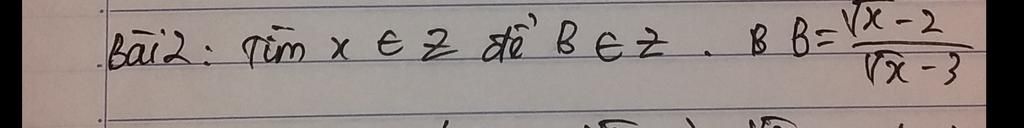 Bài 2: Tìm x ∈ Z để B ∈ Z. B B = (√x - 2)/(√x - 3)